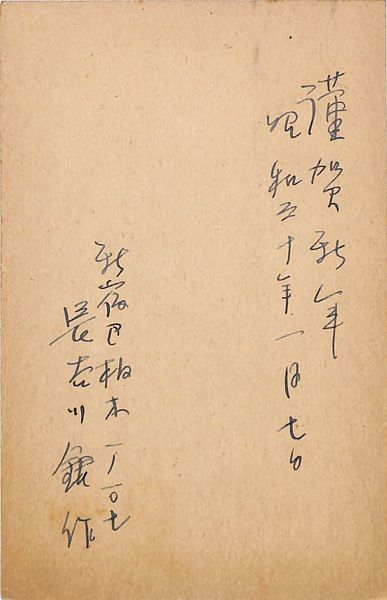 謹賀新年
昭和三十年一月七日
新宿区柏木一ノ一〇七
長谷川銀作